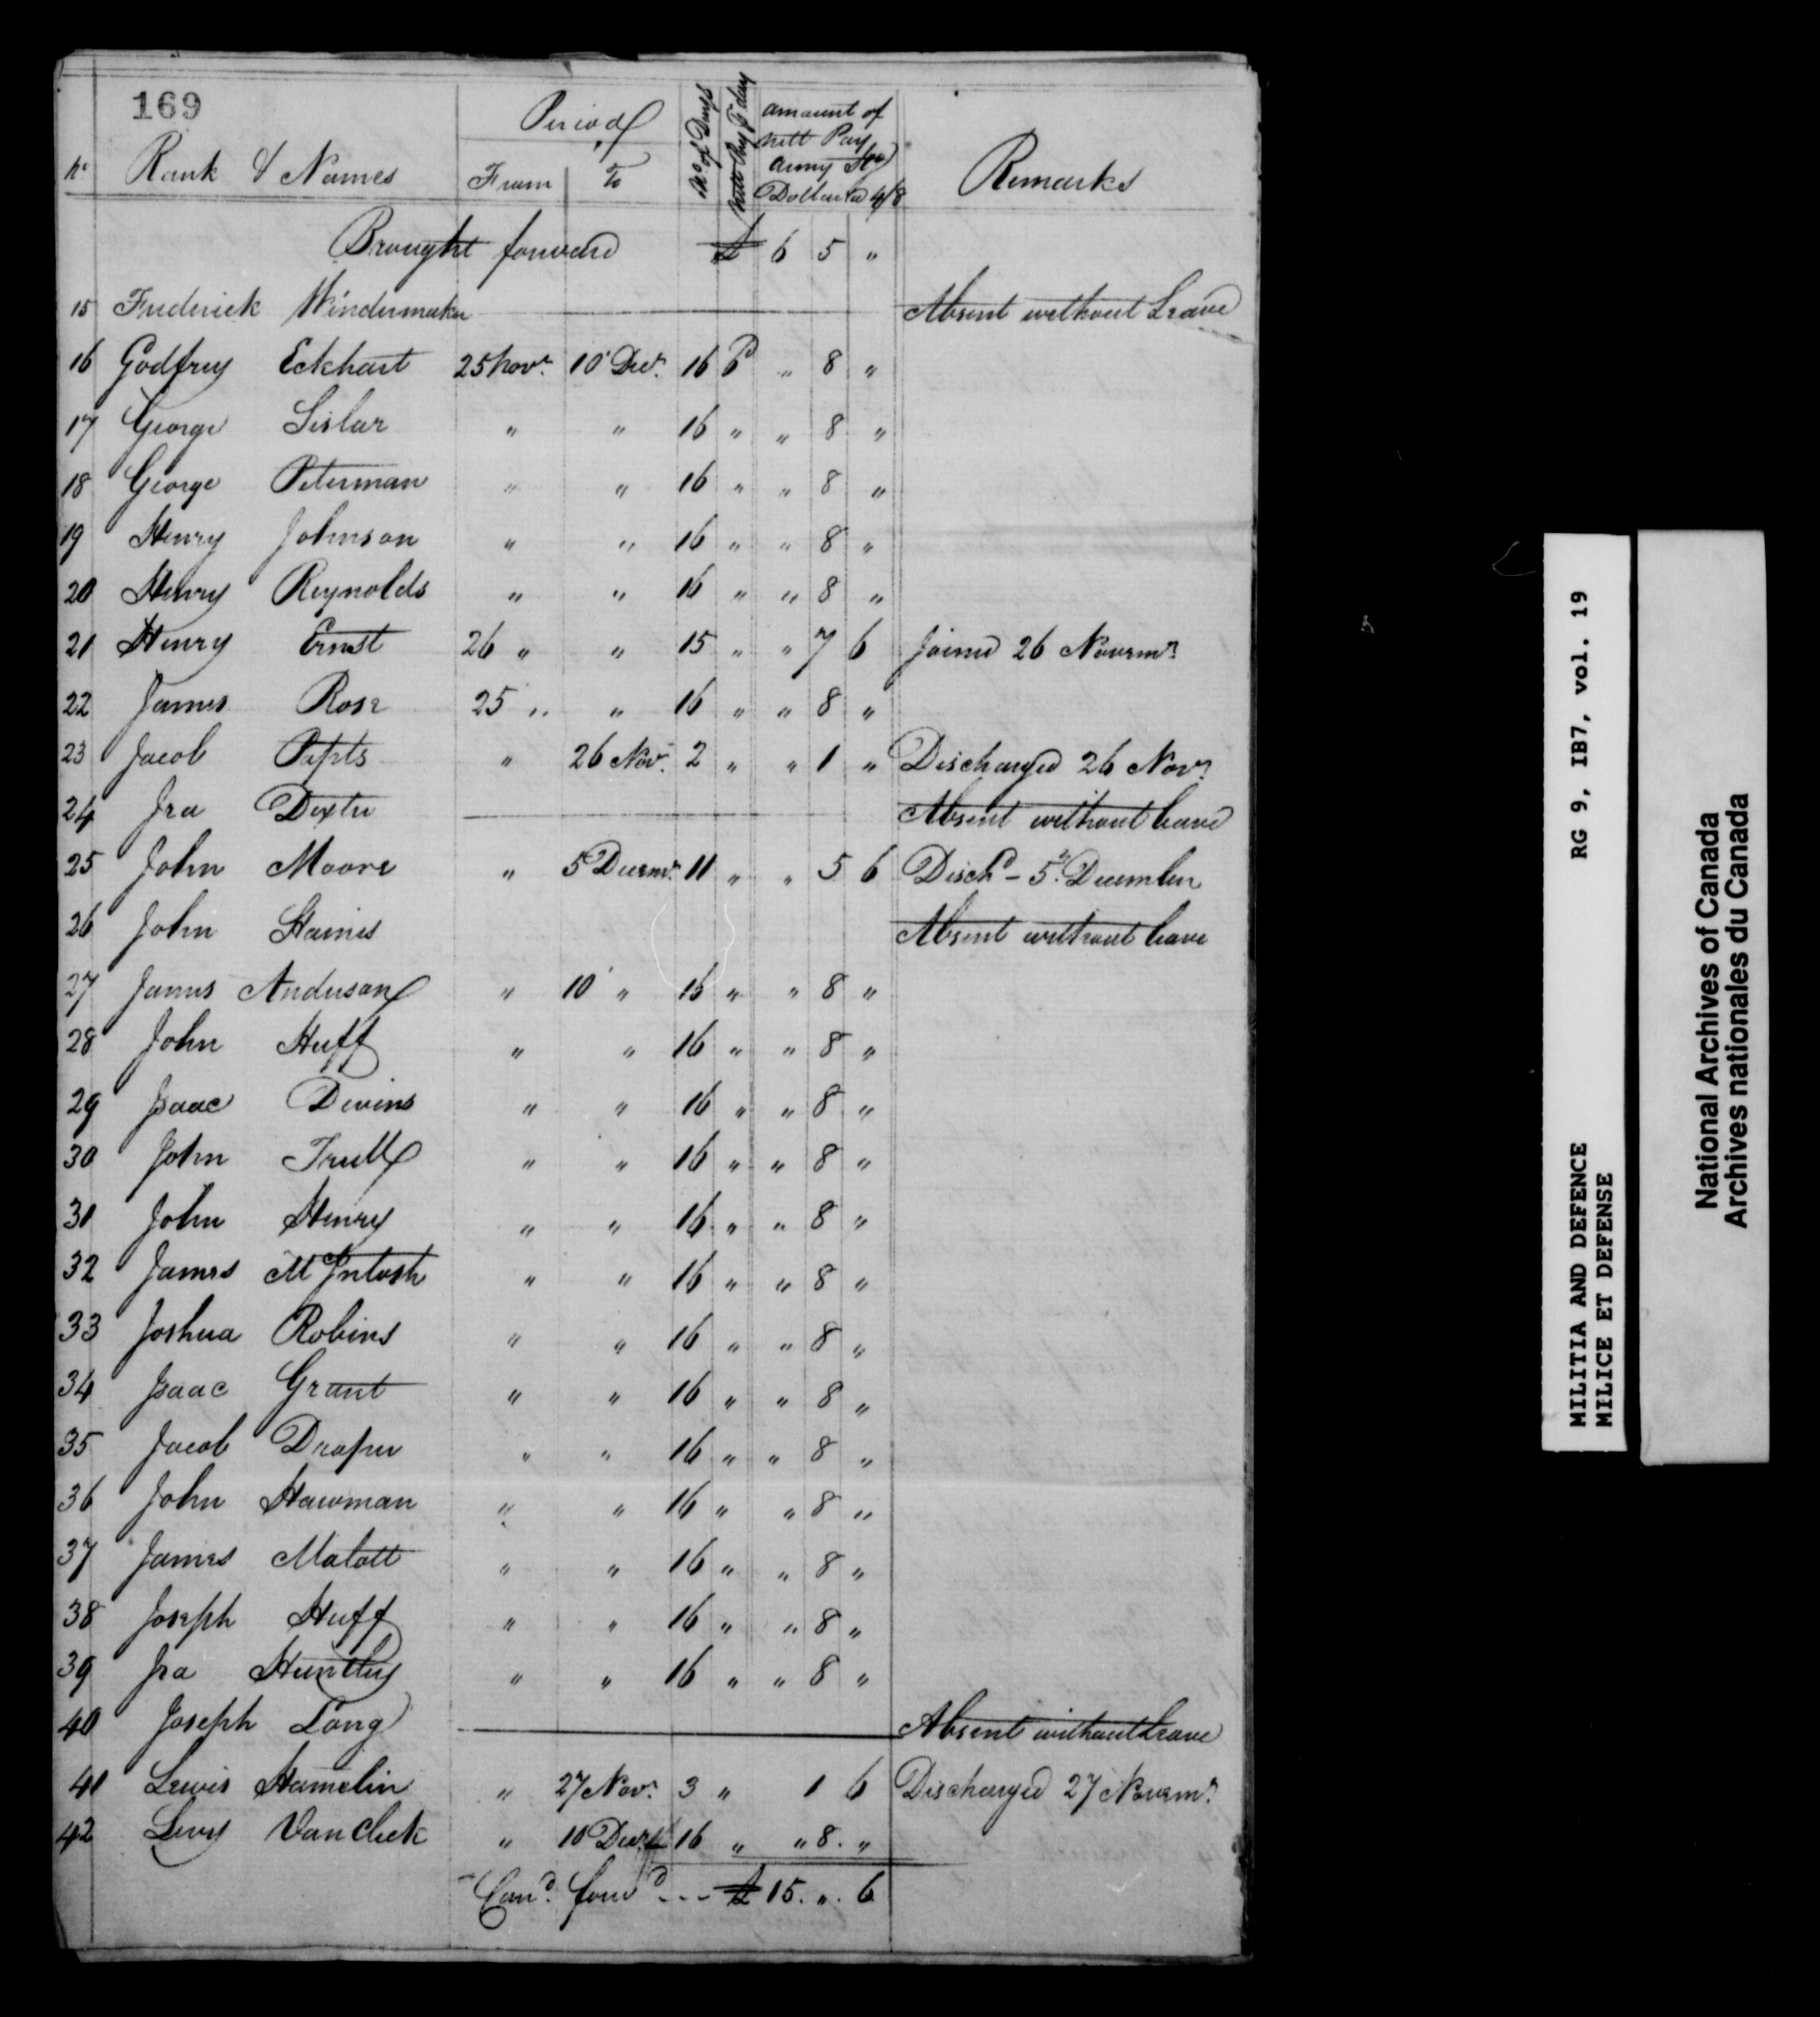 169
No Rank & Names Period From To No of Days Nett Pay pr day amount of nett Pay army Stg Dollar @ 4/8 Remarks
Brought forward £ 6 5 "
15 Frederick Windermaker Absent without Leave
16 Godfrey Eckhart 25 Novr. 10 Decr. 16 6 " 8 "
17 George Sislar " " 16 " " 8 "
18 George Peterman " " 16 " " 8 "
19 Henry Johnson " " 16 " " 8 "
20 Henry Reynolds " " 16 " " 8 "
21 Henry Ernst 26 " " 15 " " 7 6 Joined 26 Novemr.
22 James Rose 25 " " 16 " " 8 "
23 Jacob Papts " 26 Novr. 2 " " 1 " Discharged 26 Novr.
24 Ira Dexter Absent without leave
25 John Moore " 5 Decemr. 11 " " 5 6 Dischd - 5 December
26 John Haines Absent without leave
27 James Anderson " 10 " 16 " " 8 "
28 John Huff " " 16 " " 8 "
29 Isaac Devins " " 16 " " 8 "
30 John Trull " " 16 " " 8 "
31 John Henry " " 16 " " 8 "
32 James McIntosh " " 16 " " 8 "
33 Joshua Robins " " 16 " " 8 "
34 Isaac Grant " " 16 " " 8 "
35 Jacob Draper " " 16 " " 8 "
36 John Hawman " " 16 " " 8 "
37 James Malott " " 16 " " 8 "
38 Joseph Huff " " 16 " " 8 "
39 Ira Huntley " " 16 " " 8 "
40 Joseph Long Absent without Leave
41 Lewis Hamelin " 27 Novr. 3 " 1 6 Discharged 27 Novemr.
42 Levy Van Cleek " 10 Decr. 16 " " 8 . "
Carrd. forwd --- £ 15 . " . 6
MILITIA AND DEFENCE RG 9, IB7, vol. 19
MILICE ET DEFENSE
National Archives of Canada
Archives nationales du Canada